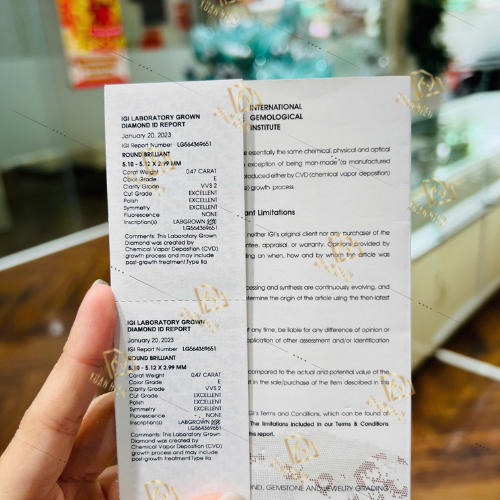 IGI LABORATORY GROWN
DIAMOND ID REPORT
January 20, 2023
IGI Report Number LG564369651
ROUND BRILLIANT
5.10 - 5.12 X 2.99 MM
Carat Weight 0.47 CARAT
Color Grade E
Clarity Grade VVS 2
Cut Grade EXCELLENT
Polish EXCELLENT
Symmetry EXCELLENT
Fluorescence NONE
Inscription(s) LABGROWN IGI
LG564369651
Comments: This Laboratory Grown
Diamond was created by
Chemical Vapor Deposition (CVD)
growth process and may include
post-growth treatment. Type IIa
IGI LABORATORY GROWN
DIAMOND ID REPORT
January 20, 2023
IGI Report Number LG564369651
ROUND BRILLIANT
5.10 - 5.12 X 2.99 MM
Carat Weight 0.47 CARAT
Color Grade E
Clarity Grade VVS 2
Cut Grade EXCELLENT
Polish EXCELLENT
Symmetry EXCELLENT
Fluorescence NONE
Inscription(s) LABGROWN IGI
LG564369651
Comments: This Laboratory Grown
Diamond was created by
Chemical Vapor Deposition (CVD)
growth process and may include
post-growth treatment. Type IIa
INTERNATIONAL
GEMOLOGICAL
INSTITUTE
essentially the same chemical, physical and optical
exception of being man-made (a manufactured
produced either by CVD (chemical vapor deposition)
growth process.
Limitations
neither IGI's original client nor any purchaser of the
appraisal, or warranty. Opinions provided by
on when, how and by whom the article was
and synthesis are continuously evolving, and
the origin of the article using the then-latest
any time, be liable for any difference of opinion or
application of other assessment and/or identification
compared to the actual and potential value of the
in the sale/purchase of the item described in this
IGI's Terms and Conditions, which can be found at
The limitations included in our Terms & Conditions
this report.
GEMSTONE AND JEWELRY GRADING